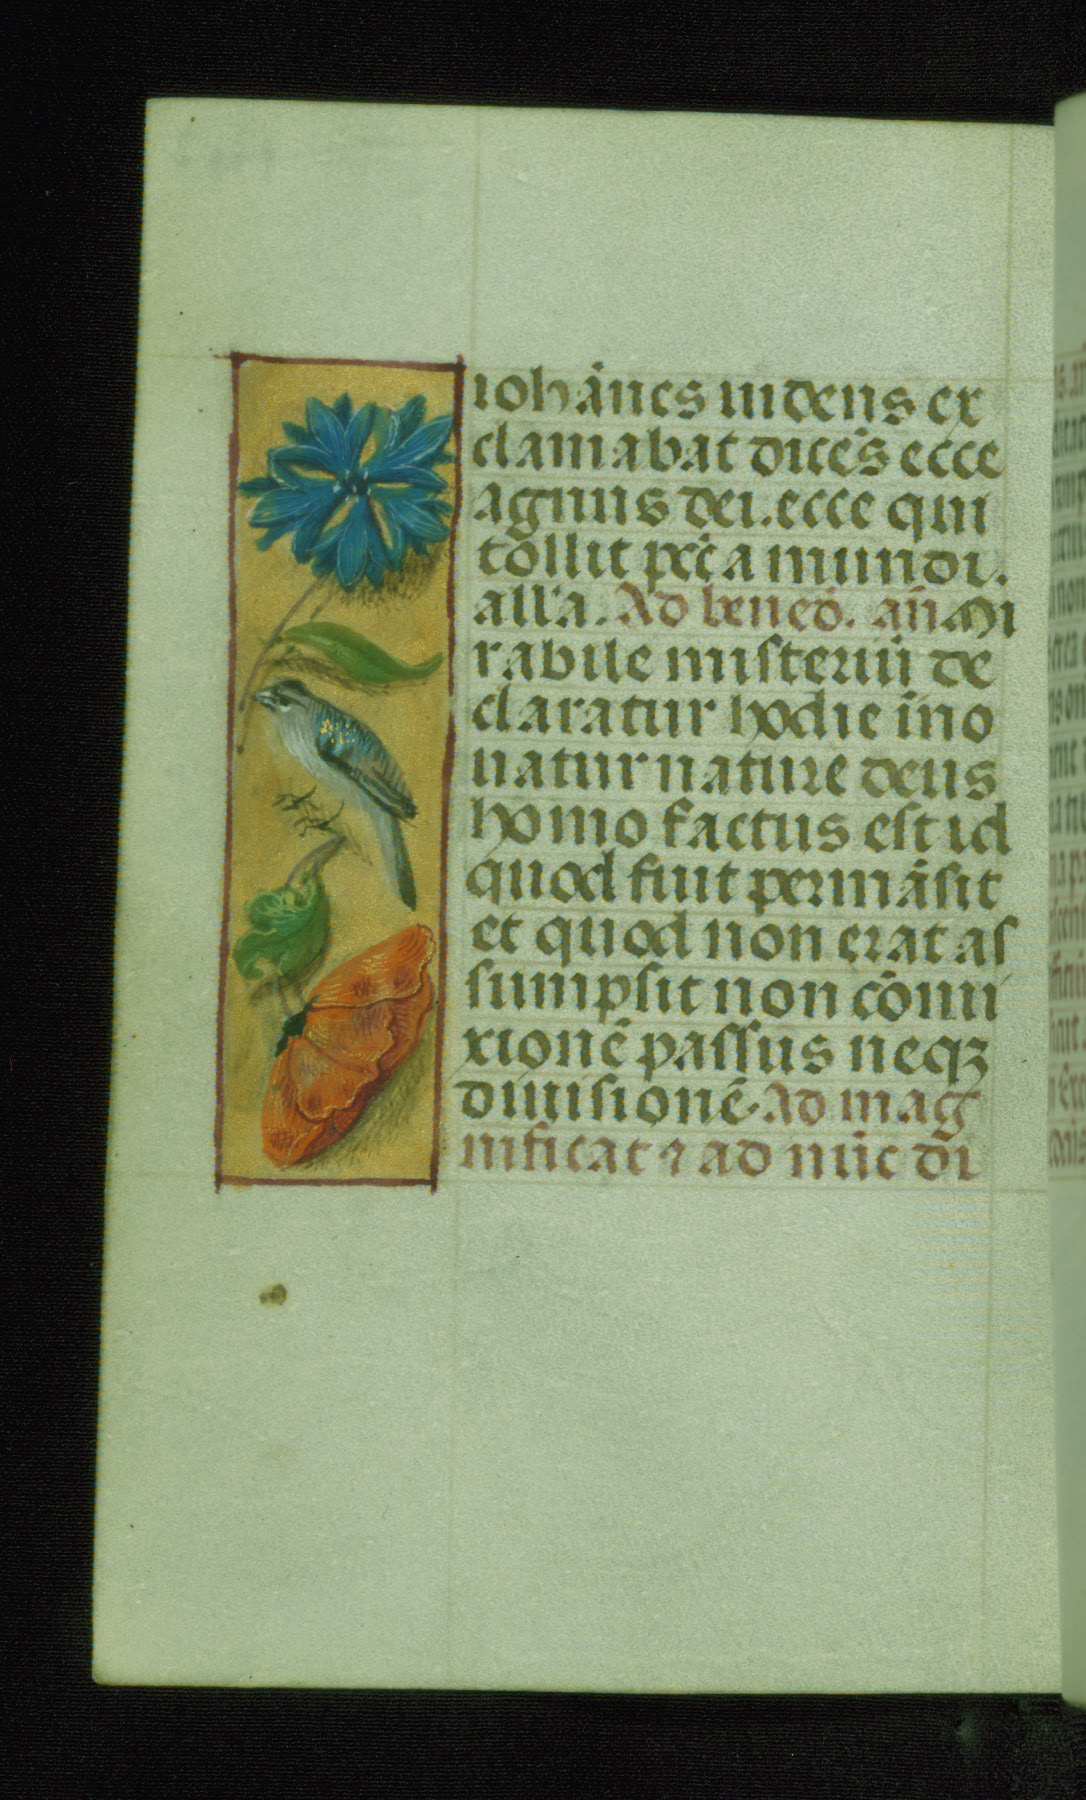 iohānes uidens ex
clamabat dicēs ecce
agnus dei. ecce qui
tollit pctā mundi.
all'a. Ad bened. an̄. Mi
rabile misteriū de
claratur hodie ī no
uatur nature deus
homo factus est id
quod fuit permāsit
et quod non erat as
sumpsit non cōmi
xtionē passus neqꝫ
diuisionē. Ad mag
nificat ⁊ ad nūc di